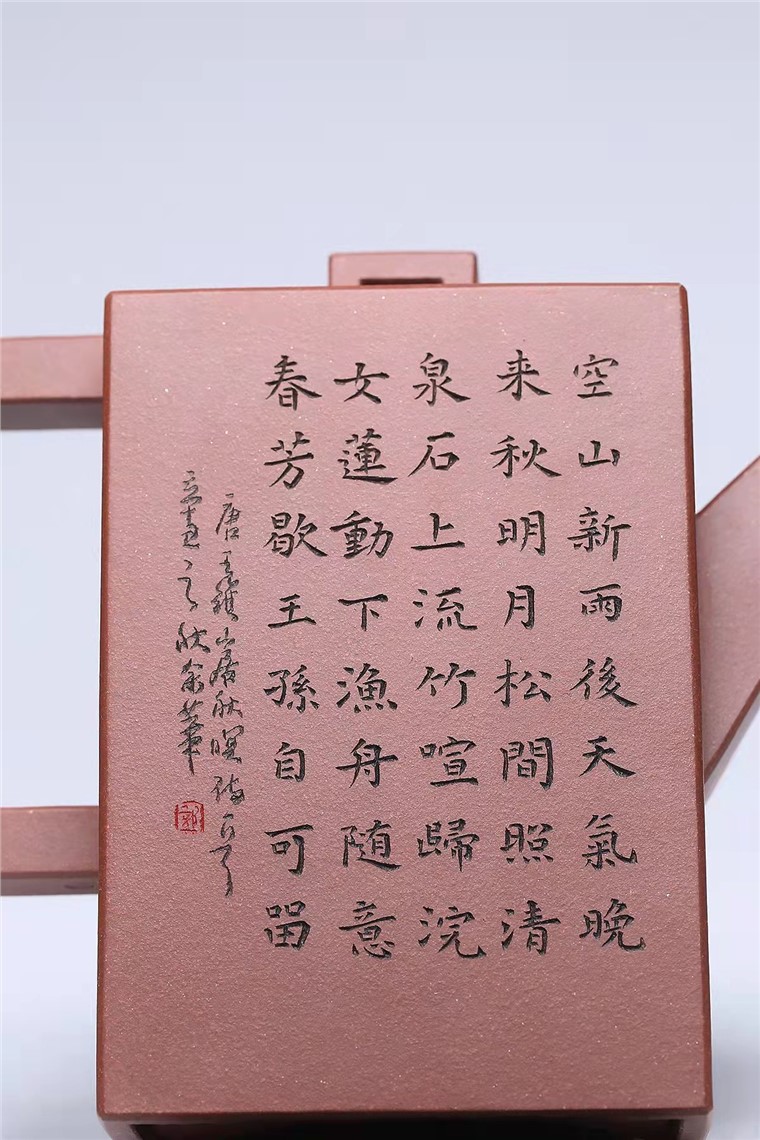 空山新雨後天氣晚
来秋明月松間照清
泉石上流竹喧歸浣
女蓮動下漁舟随意
春芳歇王孫自可留
唐王維山居秋暝